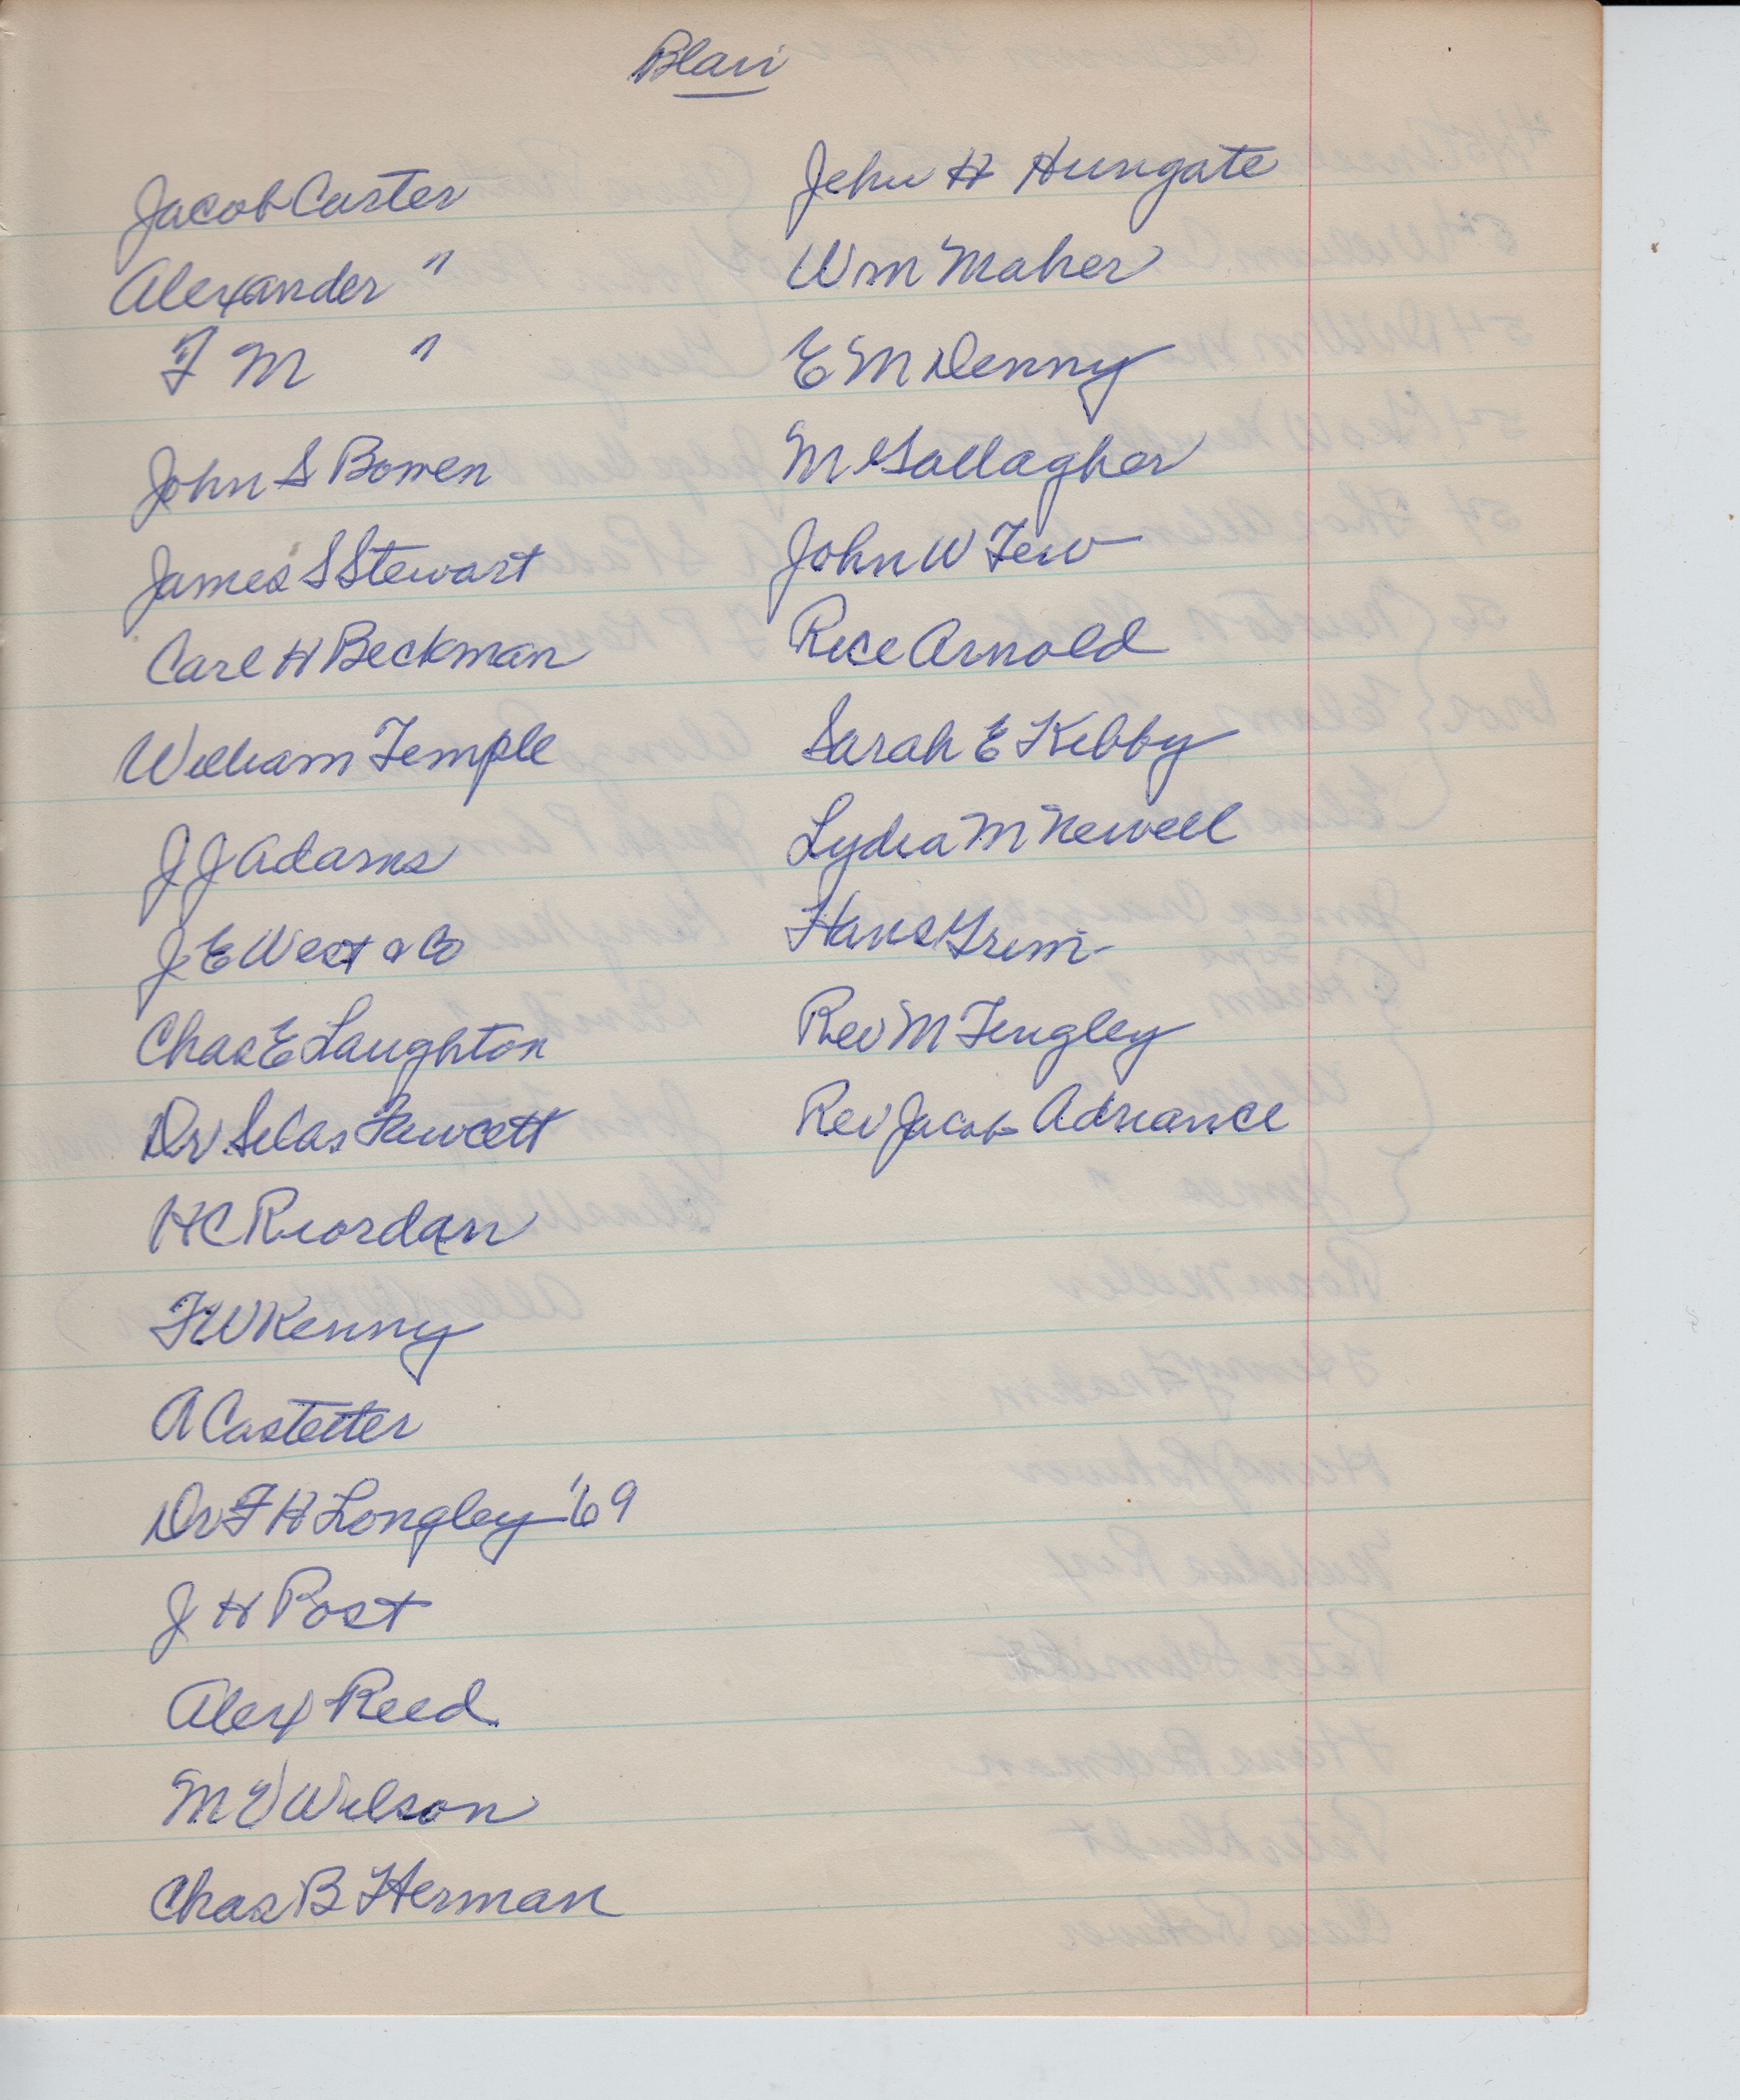 Blair
Jacob Carter
Alexander "
F M "
John S Bowen
James S Stewart
Carl H Beckman
William Temple
J J Adams
J E West & Co
Chas E Laughton
Dr. Silas Fawcett
H C Riordan
F W Kenny
A Castetter
Dr F H Longley '69
J H Post
Alex Reed
M V Wilson
Chas B Herman
John H Hungate
Wm Maher
E M Denny
M Gallagher
John W Tew
Rice Arnold
Sarah E Kibby
Lydia M Newell
Hans Grim
Rev M Tingley
Rev Jacob Adriance